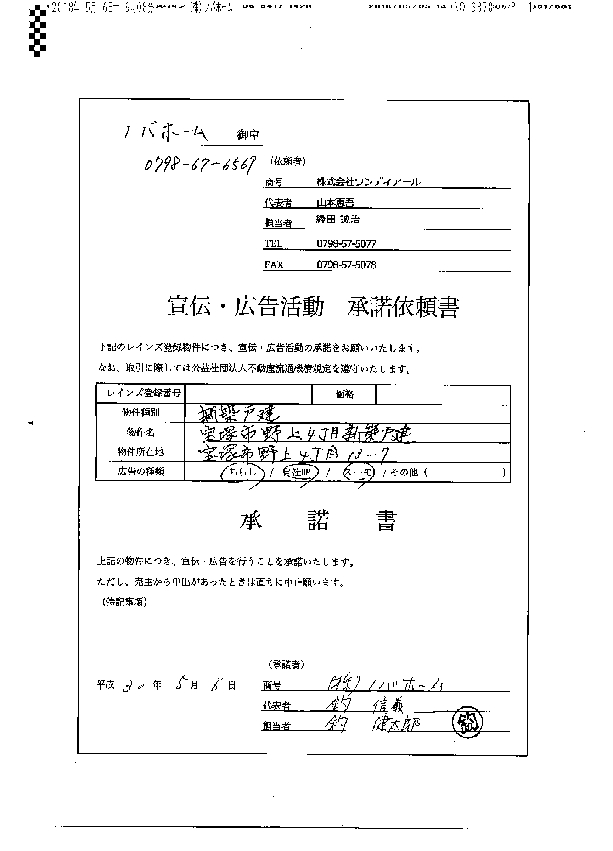 ノバホーム 御中
0798-67-6567 (依頼者)
商号 株式会社ワンディアール
代表者 山本憲吾
担当者 綿田 誠治
TEL 0798-57-5077
FAX 0798-57-5078
宣伝・広告活動 承諾依頼書
下記のレインズ登録物件につき、宣伝・広告活動の承諾をお願いいたします。
なお、取引に際しては公益社団法人不動産流通機構規定を遵守いたします。
レインズ登録番号 価格
物件種別 新築戸建
物件名 宝塚市野上4丁目新築戸建
物件所在地 宝塚市野上4丁目13-7
広告の種類 ちらし / 自社HP / スーモ / その他 ( )
承諾書
上記の物件につき、宣伝・広告を行うことを承諾いたします。
ただし、売主から申出があったときは直ちに中止願います。
(特記事項)
(承諾者)
平成 30 年 5 月 6 日 商号 (株)ノバホーム
代表者 釣 信義
担当者 釣 健太郎